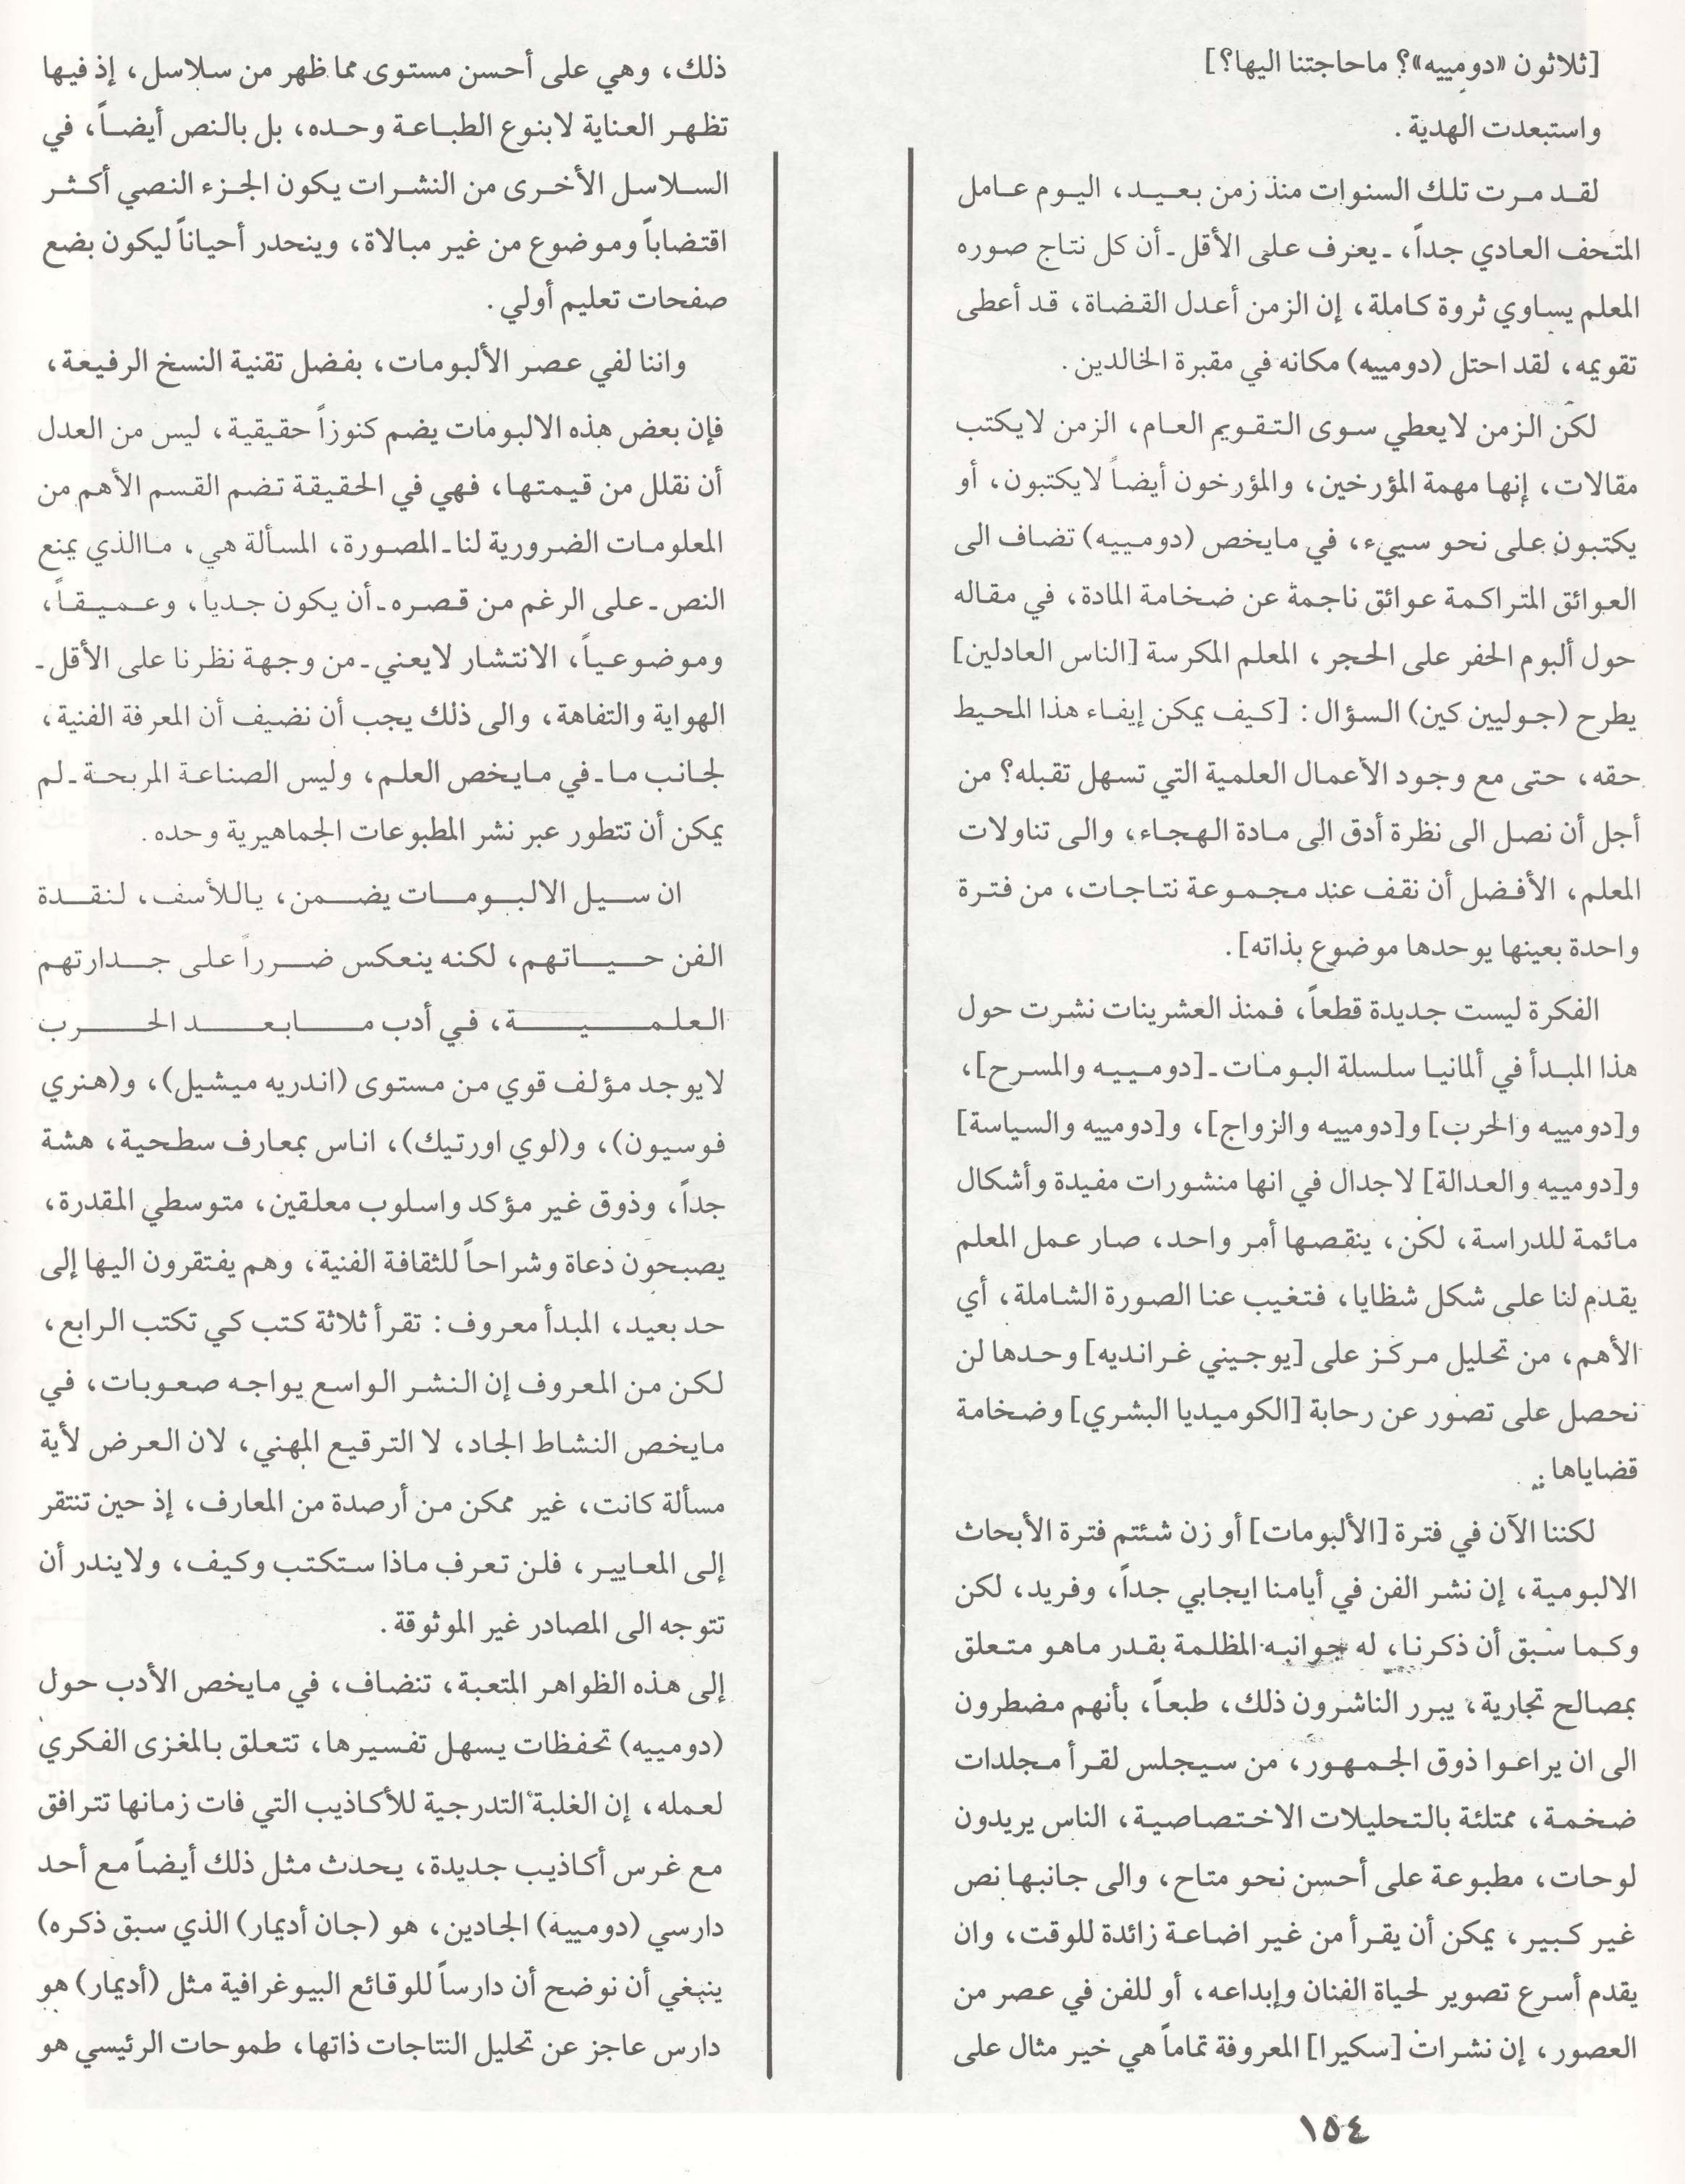 [ثلاثون «دومييه»؟ ماحاجتنا اليها؟]
واستبعدت الهدية .
لقد مرت تلك السنوات منذ زمن بعيد، اليوم عامل
المتحف العادي جداً، ـ يعرف على الأقل ـ أن كل نتاج صوره
المعلم يساوي ثروة كاملة، إن الزمن أعدل القضاة، قد أعطى
تقويمه، لقد احتل (دومييه) مكانه في مقبرة الخالدين .
لكن الزمن لايعطي سوى التقويم العام، الزمن لايكتب
مقالات، إنها مهمة المؤرخين، والمؤرخون أيضاً لايكتبون، أو
يكتبون على نحو سييء، في مايخص (دومييه) تضاف الى
العوائق المتراكمة عوائق ناجمة عن ضخامة المادة، في مقاله
حول ألبوم الحفر على الحجر، المعلم المكرسة [الناس العادلين]
يطرح (جوليين كين) السؤال : [كيف يمكن إيفاء هذا المحيط
حقه، حتى مع وجود الأعمال العلمية التي تسهل تقبله؟ من
أجل أن نصل الى نظرة أدق الى مادة الهجاء، والى تناولات
المعلم، الأفضل أن نقف عند مجموعة نتاجات، من فترة
واحدة بعينها يوحدها موضوع بذاته] .
الفكرة ليست جديدة قطعاً، فمنذ العشرينات نشرت حول
هذا المبدأ في ألمانيا سلسلة البومات ـ [دومييه والمسرح]،
و[دومييه والحرب] و[دومييه والزواج]، و[دومييه والسياسة]
و[دومييه والعدالة] لاجدال في انها منشورات مفيدة وأشكال
مائمة للدراسة، لكن، ينقصها أمر واحد، صار عمل المعلم
يقدم لنا على شكل شظايا، فتغيب عنا الصورة الشاملة، أي
الأهم، من تحليل مركز على [يوجيني غرانديه] وحدها لن
نحصل على تصور عن رحابة [الكوميديا البشري] وضخامة
قضاياها .
لكننا الآن في فترة [الألبومات] أو زن شئتم فترة الأبحاث
الالبومية، إن نشر الفن في أيامنا ايجابي جداً، وفريد، لكن
وكما سبق أن ذكرنا، له جوانبه المظلمة بقدر ماهو متعلق
بمصالح تجارية، يبرر الناشرون ذلك، طبعاً، بأنهم مضطرون
الى ان يراعوا ذوق الجمهور، من سيجلس لقرأ مجلدات
ضخمة، ممتلئة بالتحليلات الاختصاصية، الناس يريدون
لوحات، مطبوعة على أحسن نحو متاح، والى جانبها نص
غير كبير، يمكن أن يقرأ من غير اضاعة زائدة للوقت، وان
يقدم أسرع تصوير لحياة الفنان وإبداعه، أو للفن في عصر من
العصور، إن نشرات [سكيرا] المعروفة تماماً هي خير مثال على
ذلك، وهي على أحسن مستوى مما ظهر من سلاسل، إذ فيها
تظهر العناية لابنوع الطباعة وحده، بل بالنص أيضاً، في
السلاسل الأخرى من النشرات يكون الجزء النصي أكثر
اقتضاباً وموضوع من غير مبالاة، وينحدر أحياناً ليكون بضع
صفحات تعليم أولي .
واننا لفي عصر الألبومات، بفضل تقنية النسخ الرفيعة،
فإن بعض هذه الالبومات يضم كنوزاً حقيقية، ليس من العدل
أن نقلل من قيمتها، فهي في الحقيقة تضم القسم الأهم من
المعلومات الضرورية لنا ـ المصورة، المسألة هي، ماالذي يمنع
النص ـ على الرغم من قصره ـ أن يكون جدياً، وعميقاً،
وموضوعياً، الانتشار لايعني ـ من وجهة نظرنا على الأقل ـ
الهواية والتفاهة، والى ذلك يجب أن نضيف أن المعرفة الفنية،
لجانب ما ـ في مايخص العلم، وليس الصناعة المربحة ـ لم
يمكن أن تتطور عبر نشر المطبوعات الجماهيرية وحده .
ان سيل الالبومات يضمن، ياللأسف، لنقدة
الفن حياتهم، لكنه ينعكس ضرراً على جدارتهم
العلمية، في أدب مابعد الحرب
لايوجد مؤلف قوي من مستوى (اندريه ميشيل)، و(هنري
فوسيون)، و(لوي اورتيك)، اناس بمعارف سطحية، هشة
جداً، وذوق غير مؤكد واسلوب معلقين، متوسطي المقدرة،
يصبحون دعاة وشراحاً للثقافة الفنية، وهم يفتقرون اليها إلى
حد بعيد، المبدأ معروف : تقرأ ثلاثة كتب كي تكتب الرابع،
لكن من المعروف إن النشر الواسع يواجه صعوبات، في
مايخص النشاط الجاد، لا الترقيع المهني، لان العرض لأية
مسألة كانت، غير ممكن من أرصدة من المعارف، إذ حين تنتقر
إلى المعايير، فلن تعرف ماذا ستكتب وكيف، ولايندر أن
تتوجه الى المصادر غير الموثوقة .
إلى هذه الظواهر المتعبة، تنضاف، في مايخص الأدب حول
(دومييه) تحفظات يسهل تفسيرها، تتعلق بالمغزى الفكري
لعمله، إن الغلبة التدرجية للأكاذيب التي فات زمانها تترافق
مع غرس أكاذيب جديدة، يحدث مثل ذلك أيضاً مع أحد
دارسي (دومييه) الجادين، هو (جان أديمار) الذي سبق ذكره)
ينبغي أن نوضح أن دارساً للوقائع البيوغرافية مثل (أديمار) هو
دارس عاجز عن تحليل النتاجات ذاتها، طموحات الرئيسي هو
١٥٤